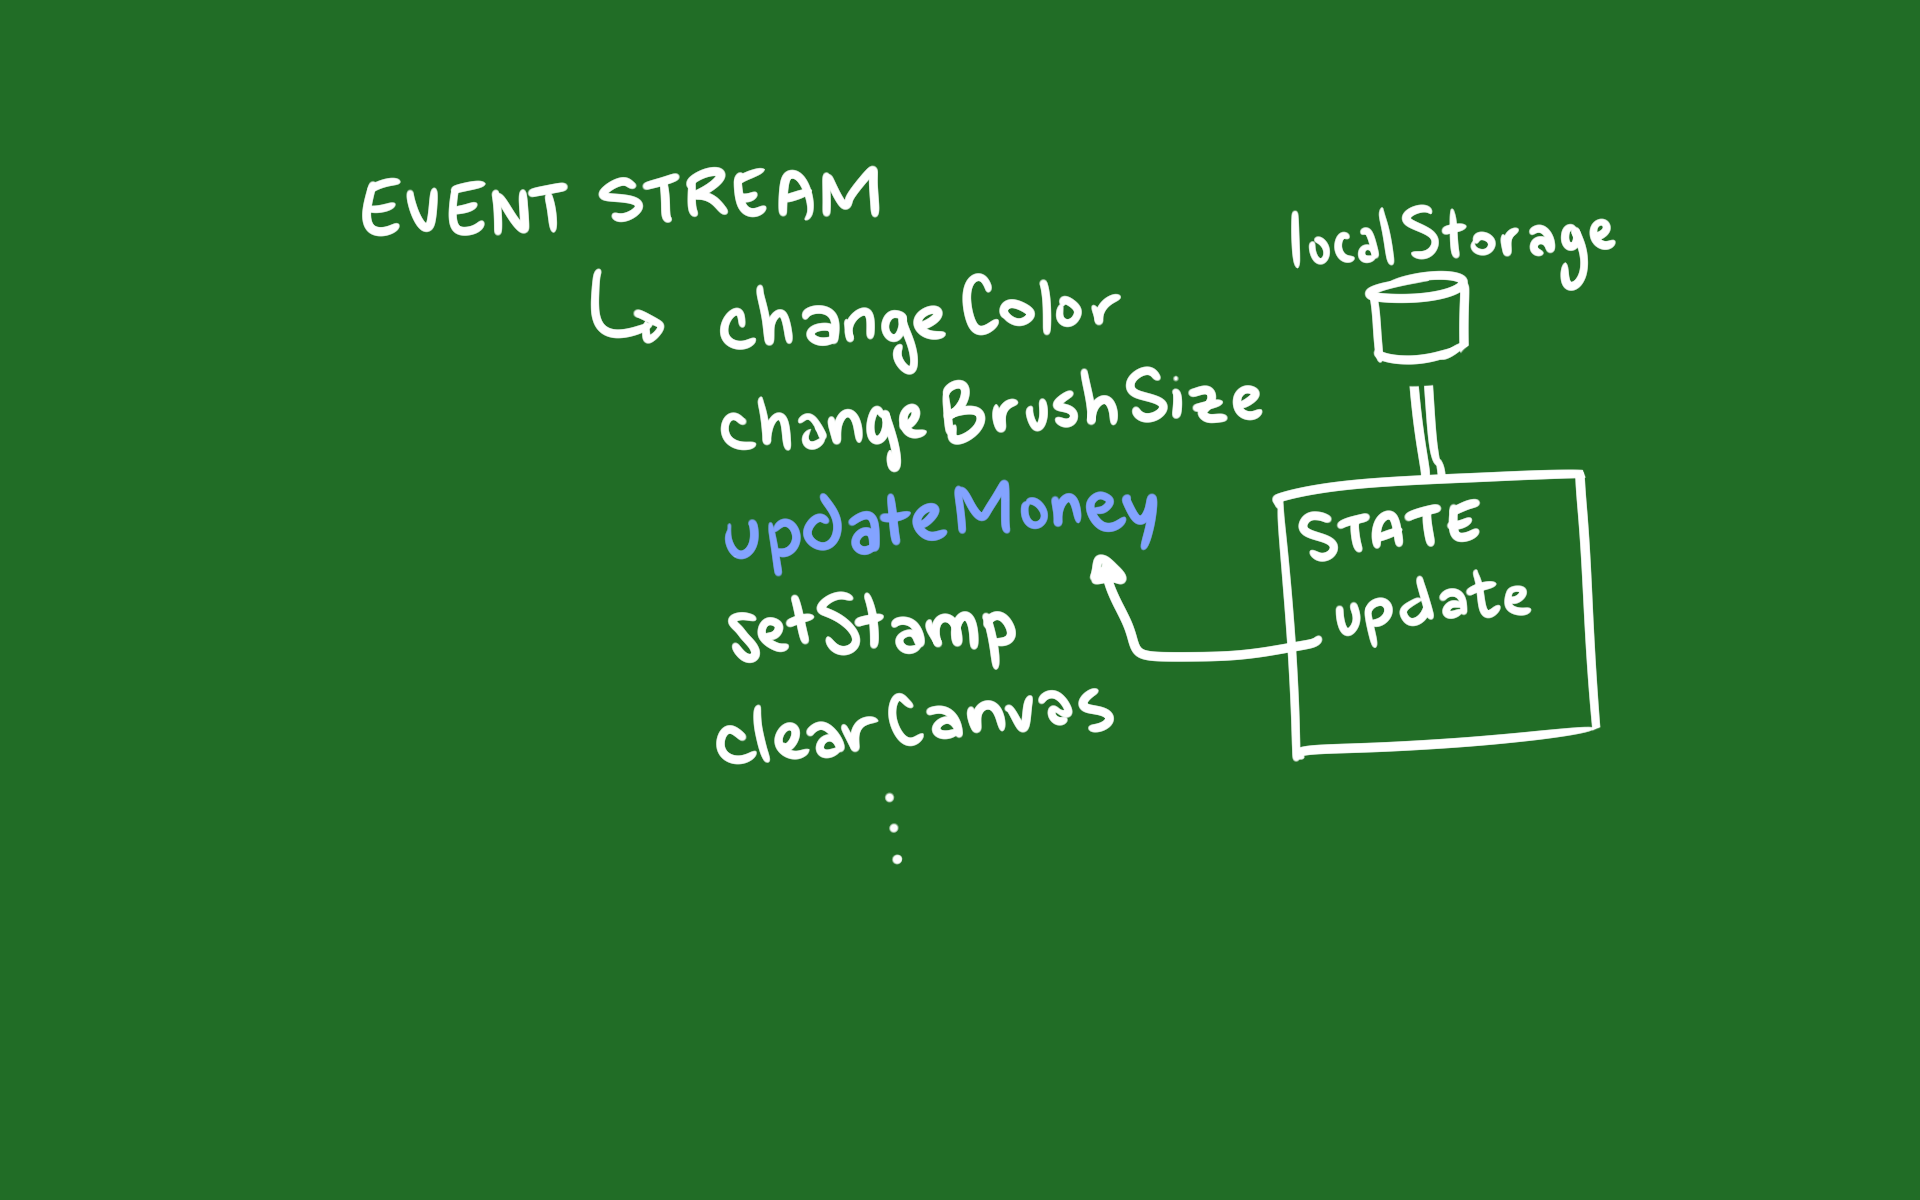 EVENT STREAM
changeColor
changeBrushSize
updateMoney
setStamp
clearCanvas
localStorage
STATE
update